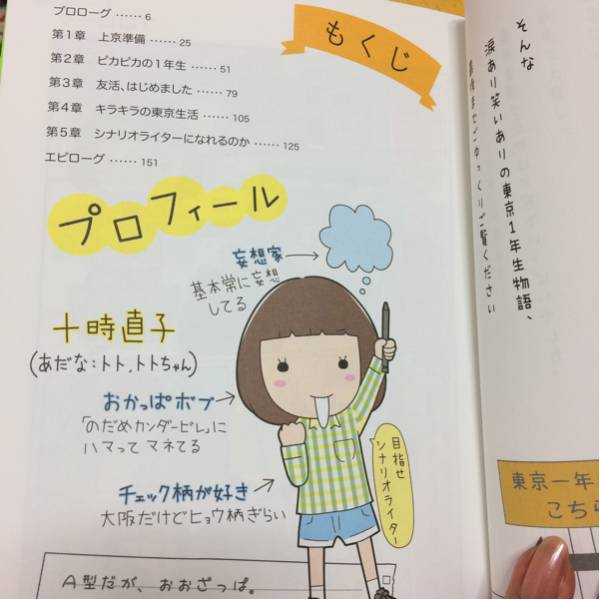 もくじ
プロローグ …… 6
第1章 上京準備 …… 25
第2章 ピカピカの1年生 …… 51
第3章 友活、はじめました …… 79
第4章 キラキラの東京生活 …… 105
第5章 シナリオライターになれるのか …… 125
エピローグ …… 151
プロフィール
妄想家
基本常に妄想
してる
十時直子
(あだな:トト,トトちゃん)
おかっぱボブ
「のだめカンタービレ」に
ハマってマネてる
目指せ
シナリオライター
チェック柄が好き
大阪だけどヒョウ柄ぎらい
A型だが、おおざっぱ。
そんな
涙あり笑いありの東京1年生物語、
最後までごゆっくりご覧ください
東京一年
こちら